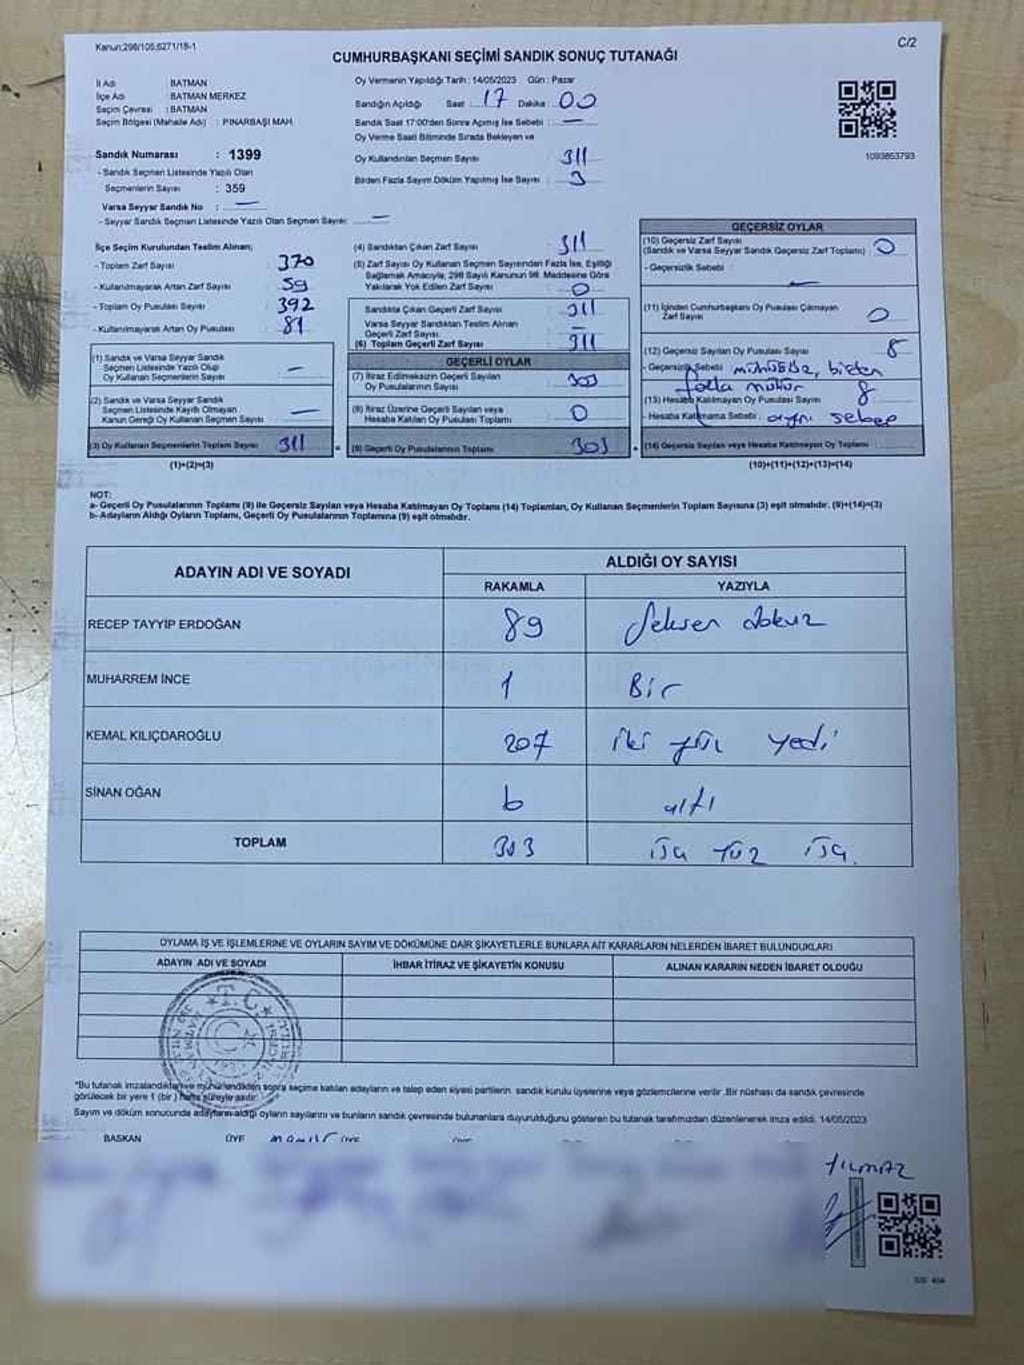 Kanun:298/105,6271/18-1
C/2
CUMHURBAŞKANI SEÇİMİ SANDIK SONUÇ TUTANAĞI
İl Adı BATMAN
İlçe Adı BATMAN MERKEZ
Seçim Çevresi : BATMAN
Seçim Bölgesi (Mahalle Adı) : PINARBAŞI MAH.
Oy Vermenin Yapıldığı Tarih : 14/05/2023 Gün : Pazar
Sandığın Açıldığı Saat : 17 Dakika : 00
Sandık Saat 17:00'den Sonra Açılmış İse Sebebi : —
Oy Verme Saati Bitiminde Sırada Bekleyen ve
Oy Kullandırılan Seçmen Sayısı 311
Birden Fazla Sayım Döküm Yapılmış İse Sayısı : 3
1093853793
Sandık Numarası : 1399
- Sandık Seçmen Listesinde Yazılı Olan
Seçmenlerin Sayısı : 359
Varsa Seyyar Sandık No : —
- Seyyar Sandık Seçmen Listesinde Yazılı Olan Seçmen Sayısı: —
İlçe Seçim Kurulundan Teslim Alınan;
- Toplam Zarf Sayısı 370
- Kullanılmayarak Artan Zarf Sayısı 59
- Toplam Oy Pusulası Sayısı 392
- Kullanılmayarak Artan Oy Pusulası 81
(1) Sandık ve Varsa Seyyar Sandık
Seçmen Listesinde Yazılı Olup
Oy Kullanan Seçmenlerin Sayısı —
(2) Sandık ve Varsa Seyyar Sandık
Seçmen Listesinde Kayıtlı Olmayan
Kanun Gereği Oy Kullanan Seçmen Sayısı —
(3) Oy Kullanan Seçmenlerin Toplam Sayısı 311
(1)+(2)=(3)
(4) Sandıktan Çıkan Zarf Sayısı 311
(5) Zarf Sayısı Oy Kullanan Seçmen Sayısından Fazla İse, Eşitliği
Sağlamak Amacıyla, 298 Sayılı Kanunun 98. Maddesine Göre
Yakılarak Yok Edilen Zarf Sayısı 0
Sandıkta Çıkan Geçerli Zarf Sayısı 311
Varsa Seyyar Sandıktan Teslim Alınan
Geçerli Zarf Sayısı —
(6) Toplam Geçerli Zarf Sayısı 311
GEÇERLİ OYLAR
(7) İtiraz Edilmeksizin Geçerli Sayılan
Oy Pusulalarının Sayısı 303
(8) İtiraz Üzerine Geçerli Sayılan veya
Hesaba Katılan Oy Pusulaları Toplamı 0
(9) Geçerli Oy Pusulalarının Toplamı 303
GEÇERSİZ OYLAR
(10) Geçersiz Zarf Sayısı
(Sandık ve Varsa Seyyar Sandık Geçersiz Zarf Toplamı) 0
- Geçersizlik Sebebi :
—
(11) İçinden Cumhurbaşkanı Oy Pusulası Çıkmayan
Zarf Sayısı 0
(12) Geçersiz Sayılan Oy Pusulası Sayısı 8
- Geçersizlik Sebebi mühürsüz, birden
fazla mühür
(13) Hesaba Katılmayan Oy Pusulası Sayısı 8
Hesaba Katılmama Sebebi: aynı sebep
(14) Geçersiz Sayılan veya Hesaba Katılmayan Oy Toplamı :
(10)+(11)+(12)+(13)=(14)
NOT:
a- Geçerli Oy Pusulalarının Toplamı (9) ile Geçersiz Sayılan veya Hesaba Katılmayan Oy Toplamı (14) Toplamları, Oy Kullanan Seçmenlerin Toplam Sayısına (3) eşit olmalıdır. (9)+(14)=(3)
b- Adayların Aldığı Oyların Toplamı, Geçerli Oy Pusulalarının Toplamına (9) eşit olmalıdır.
ADAYIN ADI VE SOYADI ALDIĞI OY SAYISI
RAKAMLA YAZIYLA
RECEP TAYYİP ERDOĞAN 89 Seksen dokuz
MUHARREM İNCE 1 Bir
KEMAL KILIÇDAROĞLU 207 iki yüz yedi
SİNAN OĞAN 6 altı
TOPLAM 303
OYLAMA İŞ VE İŞLEMLERİNE VE OYLARIN SAYIM VE DÖKÜMÜNE DAİR ŞİKAYETLERLE BUNLARA AİT KARARLARIN NELERDEN İBARET BULUNDUKLARI
ADAYIN ADI VE SOYADI İHBAR İTİRAZ VE ŞİKAYETİN KONUSU ALINAN KARARIN NEDEN İBARET OLDUĞU
T.C.
*Bu tutanak imzalandıktan ve mühürlendikten sonra seçime katılan adayların ve talep eden siyasi partilerin, sandık kurulu üyelerine veya gözlemcilerine verilir. Bir nüshası da sandık çevresinde
görülecek bir yere 1 (bir ) hafta süreyle asılır.
Sayım ve döküm sonucunda adayların aldığı oyların sayılarını ve bunların sandık çevresinde bulunanlara duyurulduğunu gösteren bu tutanak tarafımızdan düzenlenerek imza edildi. 14/05/2023
BAŞKAN ÜYE ÜYE ÜYE
YILMAZ